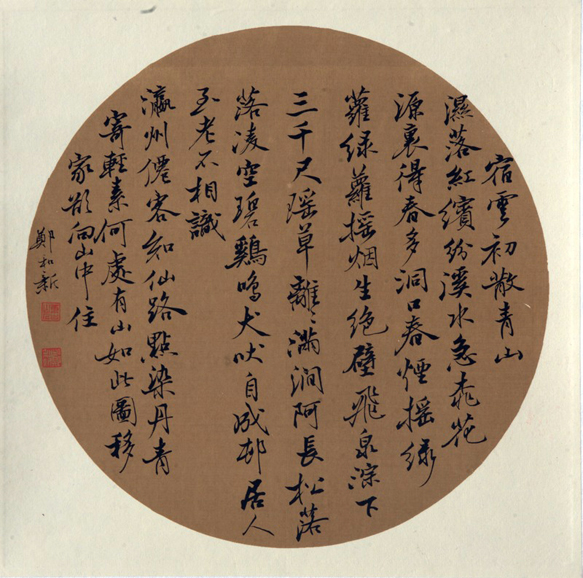 宿雲初散青山
濕落紅繽紛溪水急桃花
源裏得春多洞口春煙搖緑
蘿緑蘿摇烟生绝壁飛泉淙下
三千尺瑶草離〻滿澗阿長松落
落凌空碧鷄鳴犬吠自成邨居人
至老不相識
瀛州僊客知仙路點染丹青
寄輕素何處有山如此圖移
家欲向山中住
鄭和